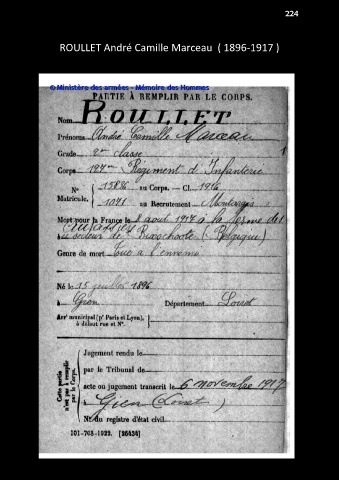 224
ROULLET André Camille Marceau ( 1896-1917 )
© Ministère des armées - Mémoire des Hommes
PARTIE À REMPLIR PAR LE CORPS.
Nom ROULLET
Prénoms André Camille Marceau
Grade 2me classe
Corps 127me Régiment d'Infanterie
N° Matricule. { 15836 au Corps. — Cl. 1916
1071 au Recrutement Montargis
Mort pour la France le 8 août 1917 à la ferme des
cuirassiers
secteur de Bixschoote (Belgique)
Genre de mort Tué à l'ennemi
Né le 15 juillet 1896
à Gien Département Loiret
Arrt municipal (pr Paris et Lyon), à défaut rue et N°. {
Cette partie n'est pas à remplir par le Corps.
Jugement rendu le
par le Tribunal de
acte ou jugement transcrit le 6 novembre 1917
à Gien (Loiret)
N° du registre d'état civil
101-708-1922. [26434]